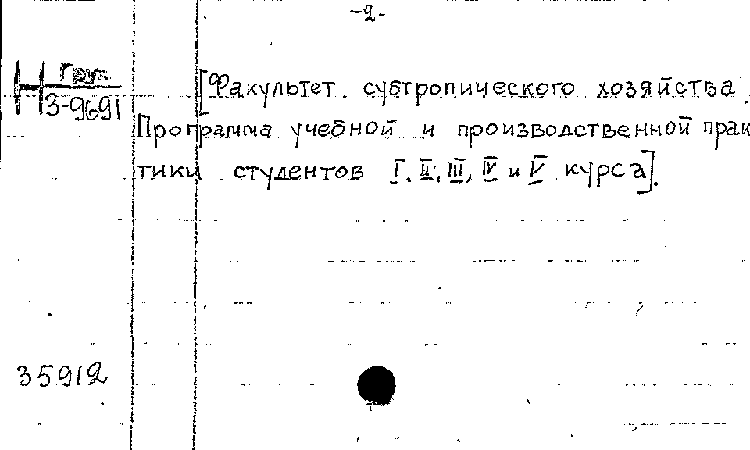 -2-
Н груз. [Факультет субтропического хозяйства.
3-9691
Программа учебной и производственной прак
тики студентов I, II, III, IV и V курса].
35912